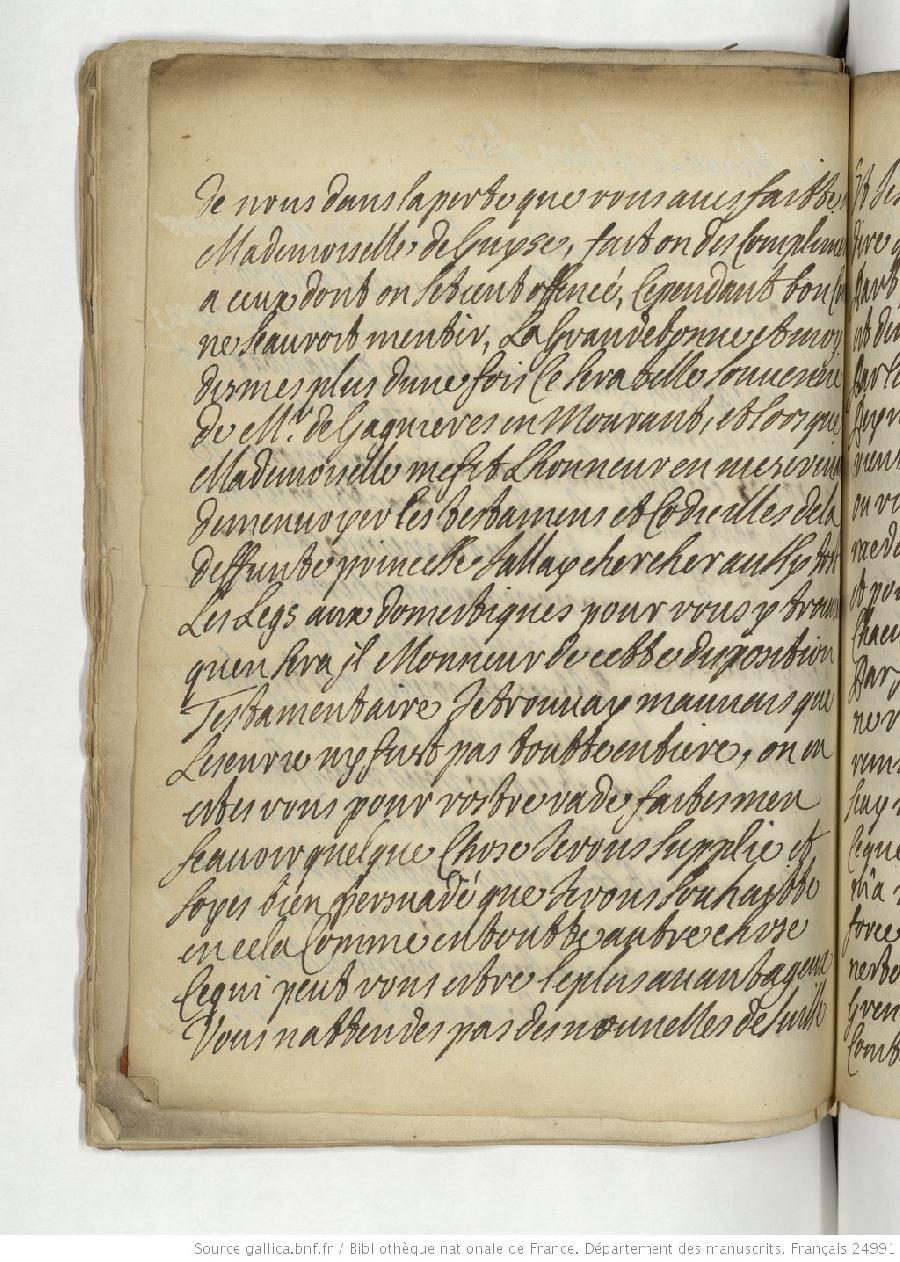 de nous dans la perte que vous aues faitte
Mademoiselle de Guyse, fait on des Complimen
a ceux dont on setient offencé, Cependant bon
ne scauroit mentir, La Grande bonne et moy
dismes plus dune fois Ce sera elle souuerine
de Mr. de Gagnieres en Mourant, et lorsque
Mademoiselle me fit Lhonneur en mescriuant
demenuoyer les testamens et Codicilles dela
deffunte princesse Jallay chercher aussy tost
Les Legs aux domestiques pour vous y trouuer
quen sera jl Monsieur de cette disposition
Testamentaire Je trouuay mauuais que
Lescurie ny fust pas toutte entiere, ou en
estes vous pour vostre faites men
scauoir quelque Chose Je vous supplie et
soyes bien persuadé que Je vous souhaytte
en cela Comme en toutte autre chose
Ce qui peut vous estre le plus auantageux
Vous nattendes pas des nouuelles de

Source gallica.bnf.fr / Bibliothèque nationale de France. Département des manuscrits. Français 24991